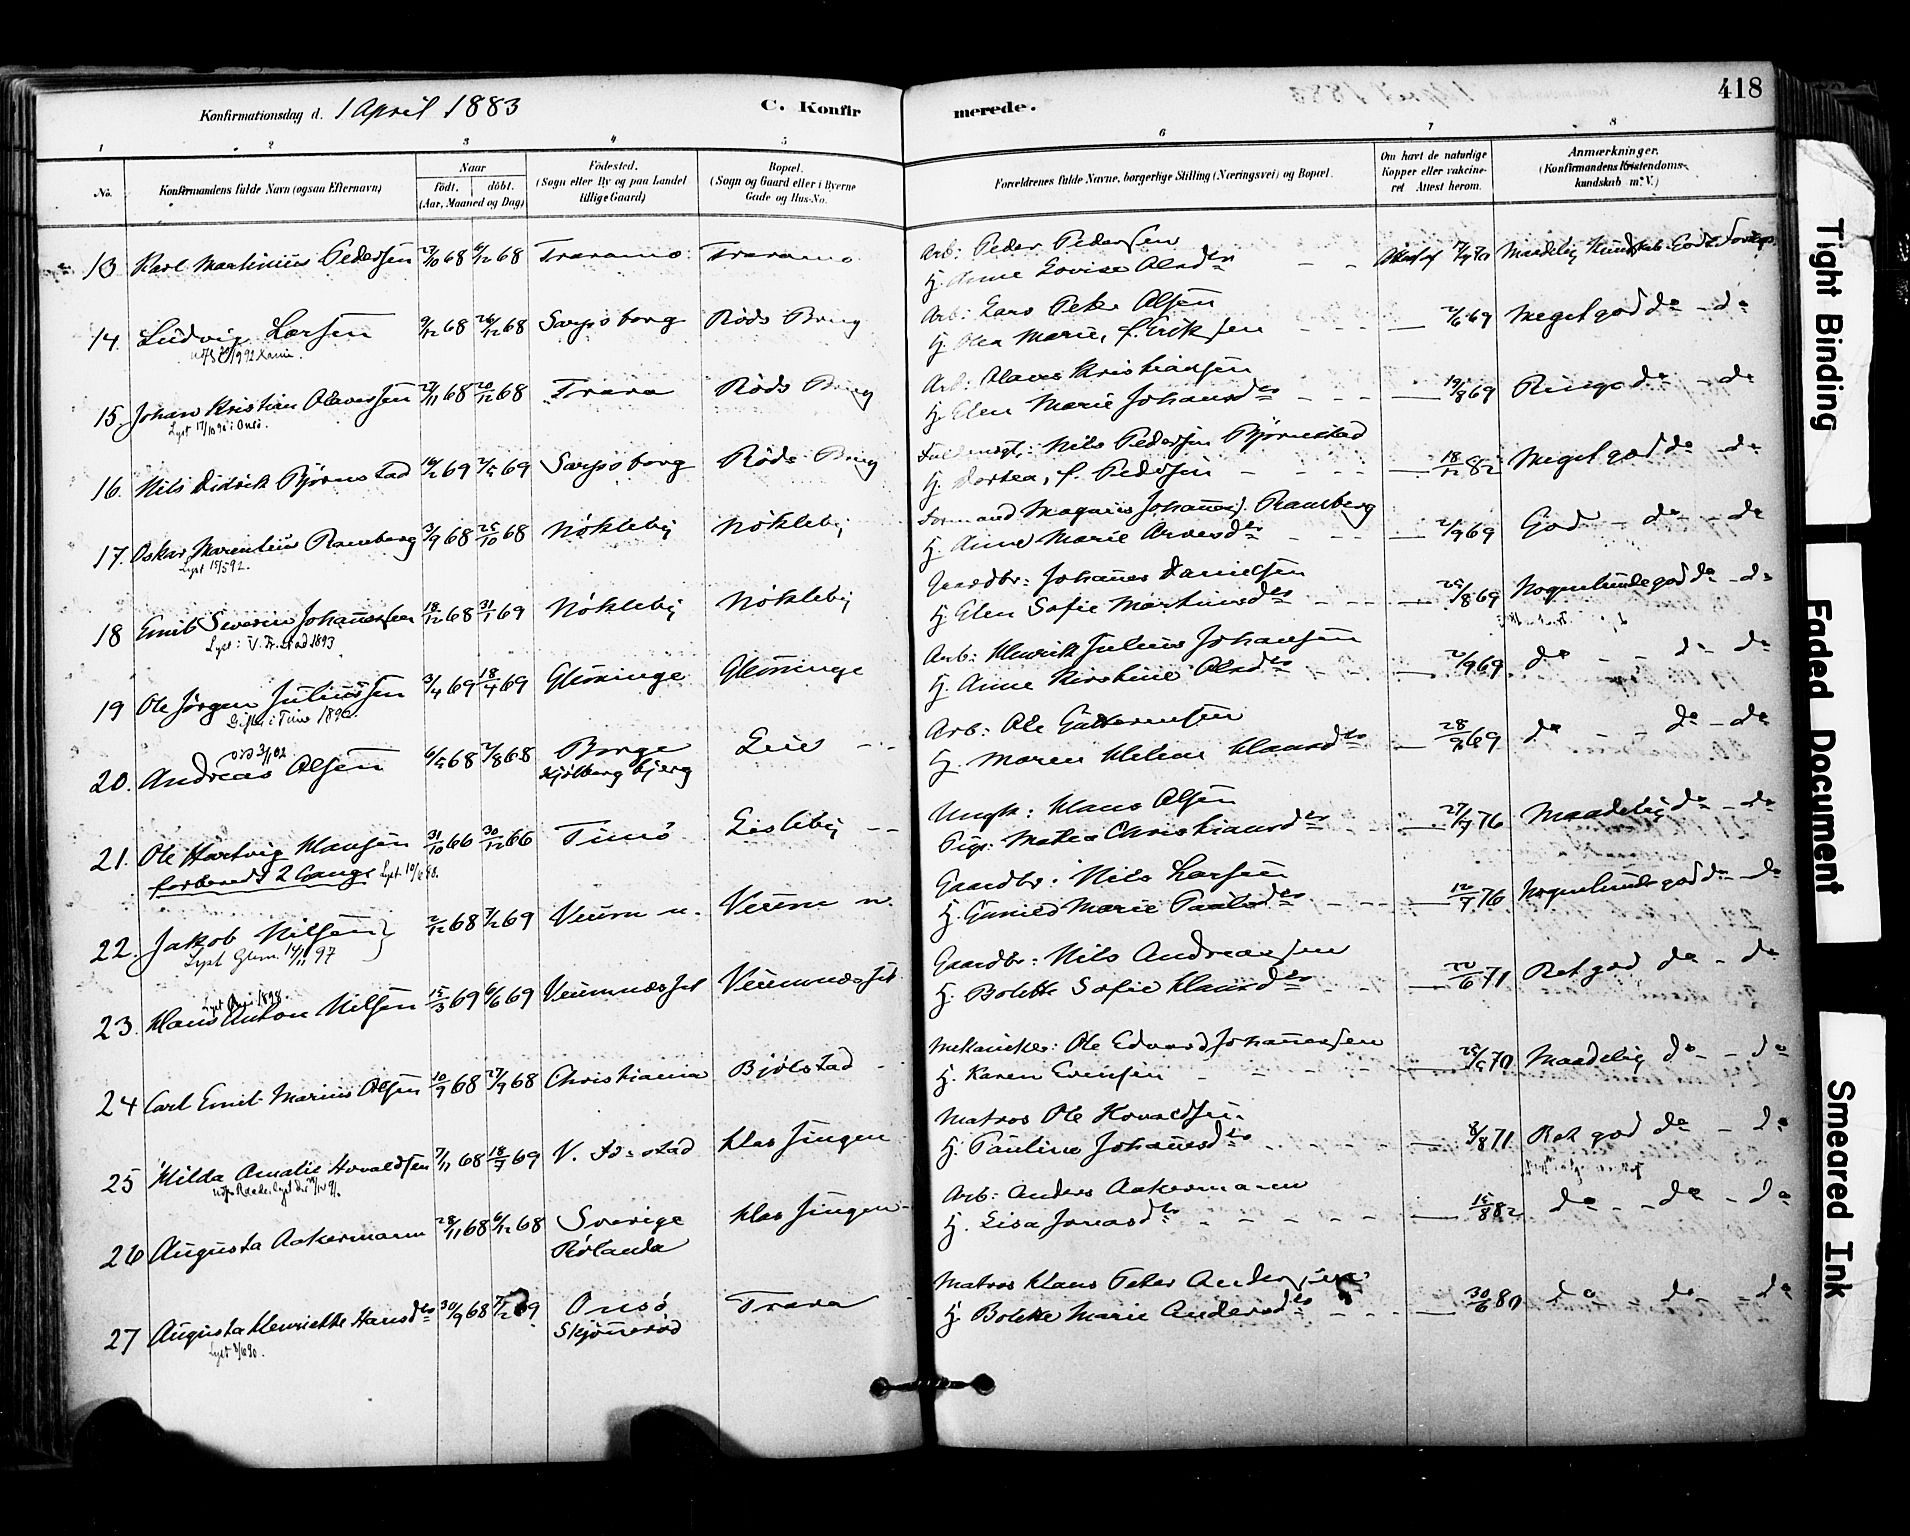 Konfirmationsdag d. 1 April 1883 C. Konfirmerede. 418
1 2 3 4 5 6 7 8
No. Konfirmandens fulde Navn (ogsaa Efternavn) Naar födt. döbt. (Aar, Maaned og Dag) Födested. (Sogn eller By og paa Landet tillige Gaard) Bopæl. (Sogn og Gaard eller i Byerne Gade og Hus-No. Forældrenes fulde Navne, borgerlige Stilling (Næringsvei) og Bopæl. Om havt de naturlige Kopper eller vakcineret Attest herom. Anmærkninger. (Konfirmandens Kristendomskundskab m. V.)
13 Karl Martinius Pedersen 27/10 68 6/12 68 Traramo Traramo Arb: Peder Pedersen
H. Anne Lovise Olsdtr 70 Maadelig Kundskab. God
14. Ludvig Larsen 9/12 68 26/12 68 Sarpsborg Röds Brug Arb: Lars Peter Olsen
H. Olea Marie, f. Eriksen 69 Meget god do - do
15. Johan Kristian Olavessen 27/11 68 20/12 68 Trara Röds Brug Arb: Olaves Kristiansen
Lyst 17/10 90 i Onsö.
H. Elen Marie Johansdtr 19/8 69 Ringe do - do
16. Nils Didrik Björnestad 69 69 Sarpsborg Röds Brug Nils Pedersen Björnestad
H. Dortea, f. Pedersen 18/12 82 Meget god do - do
17. Oskar Marentius Ramberg 3/9 68 25/10 68 Nökleby Nökleby Formand Magnus Johannes. Ramberg
Lyst 15/5 92.
H. Anne Marie Arnesdtr 2/9 69 God - do - do
18 Emil Severin Johannessen 18/12 68 31/1 69 Nökleby Nökleby Gaardbr: Johannes Danielsen
Lyst i V. Fr.stad 1893
H. Elen Sofie Martinsdtr 25/8 69 Nogenlunde god do - do
19 Ole Jörgen Juliussen 3/4 69 18/4 69 Glemminge Glemminge Arb: Henrik Julius Johansen
H. Anne Kirstine Olsdtr 2/9 69 do - - do - do
20. Andreas Olsen 6/5 68 2/8 68 Borge Kjölberg bjerg Leie Arb: Ole Guttormsen
H. Maren Helene Hansdtr 28/9 69 do - - do - do
21. Ole Hartvig Hansen 31/10 66 30/12 66 Tunö Lisleby Ungk: Hans Olsen
forberedt 2 Gange
Pige: Matea Christiansdtr 27/7 76 Maadelig do - do
22. Jakob Nilsen 2/12 68 7/2 69 Veum n. Veum n. Gaardbr: Nils Larsen
Lyst Glem. 14/11 97
H. Gunild Marie Paulsdtr 12/7 76 Nogenlunde god do - do
23. Hans Anton Nilsen 15/3 69 6/6 69 Veumnæsset Veumnæsset Gaardbr: Nils Andreassen
H. Bolette Sofie Hansdtr 22/6 71 Ret god do - do
24 Carl Emil Marius Olsen 10/9 68 27/9 68 Christiania Bjölstad Mekaniker: Ole Edvard Johannessen
H. Karen Evensen 70 Maadelig do - do
25 Hilda Amalie Hovaldsen 7/11 68 18/7 69 V. Fr.stad Hassingen Matros Ole Hovaldsen
H. Pauline Johannesdtr 8/8 71 Ret god do - do
26 Augusta Aakermann 28/11 68 6/12 68 Sverige Rölanda Hassingen Arb: Anders Aakermann
H. Lisa Jonasdtr 15/8 82 do - do - do
27 Augusta Henriette Hansdtr 30/9 68 Onsö Skjönneröd Trara Matros Hans Peter Andersen
H. Bolette Marie Andersdtr 30/6 80 do do - do
Tight Binding
Faded Document
Smeared Ink